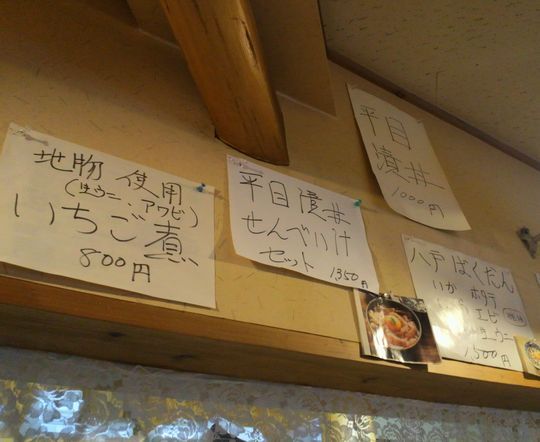 地物 使用
(生ウニ・アワビ)
いちご煮
800円
平目漬丼
せんべい汁
セット 1350円
平目
漬丼
1000円
八戸ばくだん
いか ホタテ
エビ
生ウニ
1500円